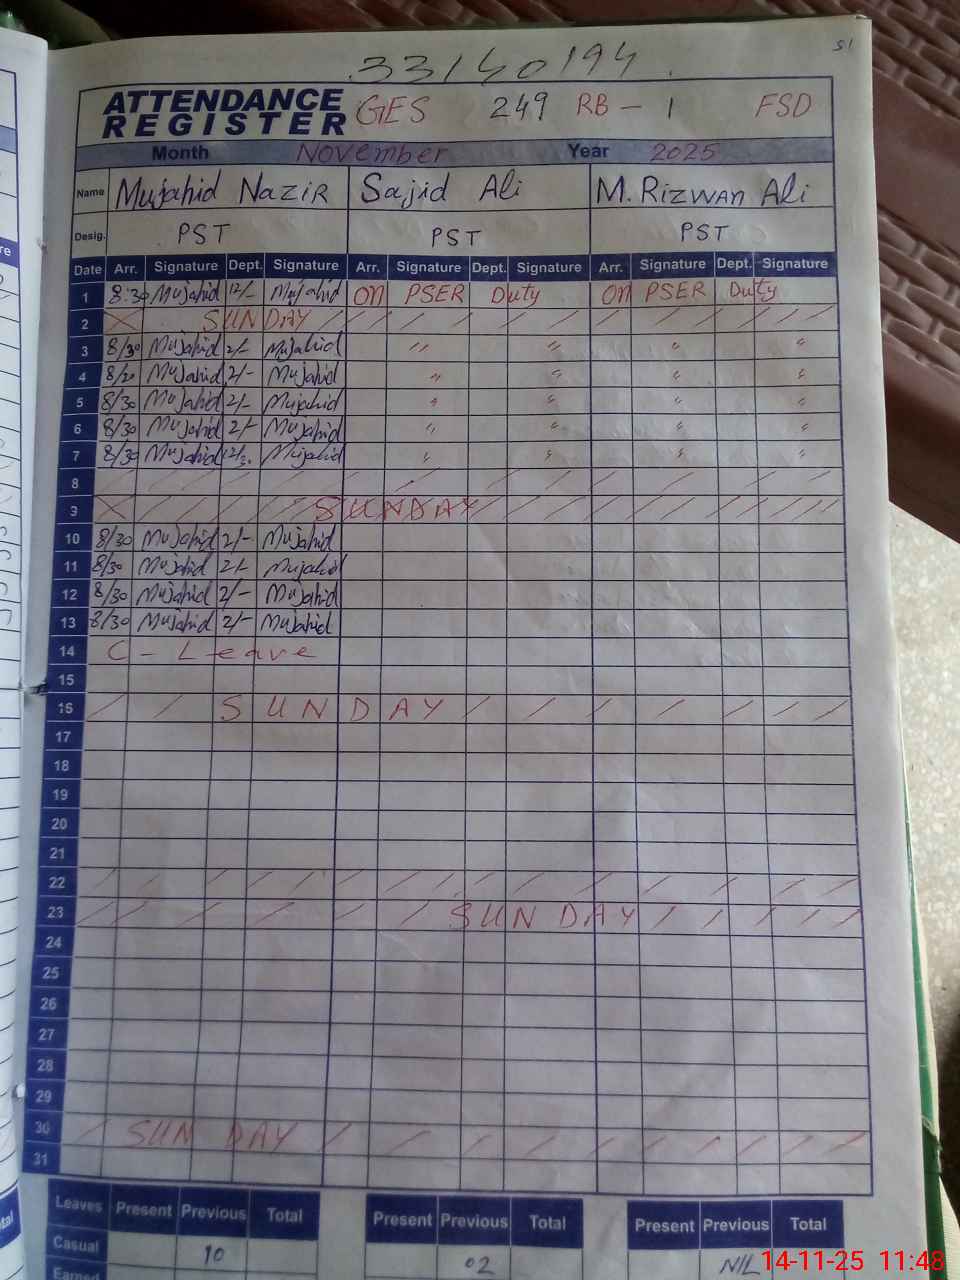 51
33140194
ATTENDANCE REGISTER GES 249 RB - 1 FSD
Month November Year 2025
Name Mujahid Nazir Sajid Ali M. Rizwan Ali
Desig. PST PST PST
Date Arr. Signature Dept. Signature Arr. Signature Dept. Signature Arr. Signature Dept. Signature
1 8:30 Mujahid 12/- Mujahid On PSER Duty On PSER Duty
2 SUNDAY
3 8/30 Mujahid 2/- Mujahid " " " "
4 8/20 Mujahid 2/- Mujahid " " " "
5 8/30 Mujahid 2/- Mujahid " " " "
6 8/30 Mujahid 2/- Mujahid " " " "
7 8/30 Mujahid Mujahid " " " "
8
9 SUNDAY
10 8/30 Mujahid 2/- Mujahid
11 8/30 Mujahid 2/- Mujahid
12 8/30 Mujahid 2/- Mujahid
13 8/30 Mujahid 2/- Mujahid
14 C - Leave
15
16 SUNDAY
17
18
19
20
21
22
23 SUNDAY
24
25
26
27
28
29
30 SUNDAY
31
Leaves Present Previous Total Present Previous Total Present Previous Total
Casual 10 02 NIL
Earned
14-11-25 11:48